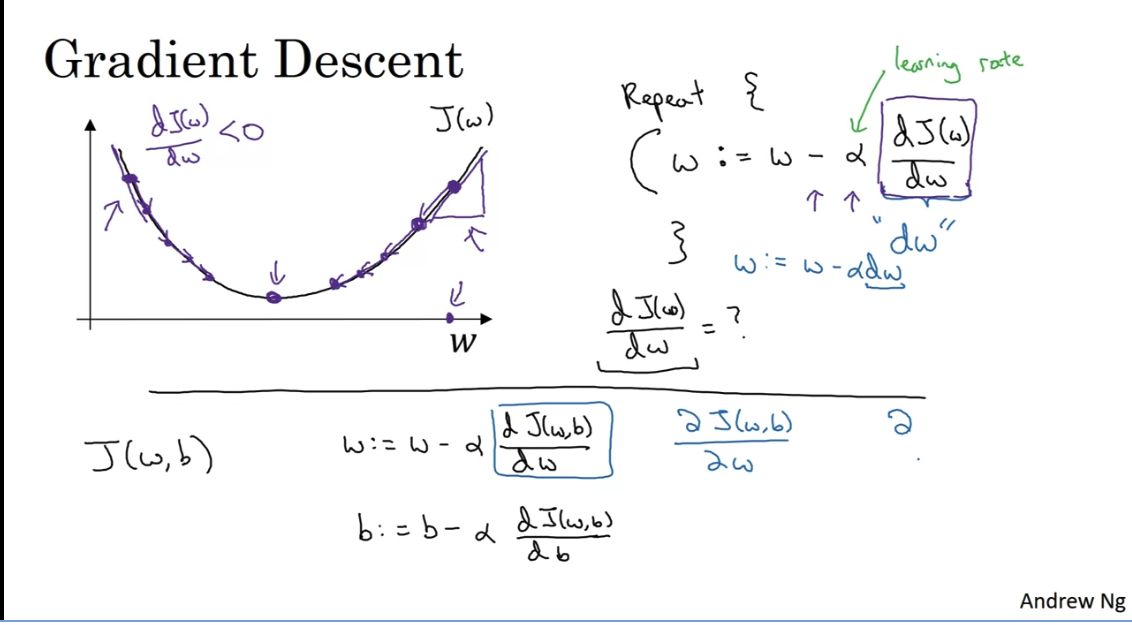 Gradient Descent
dJ(w)/dw < 0
J(w)
w
learning rate
Repeat {
w := w - α dJ(w)/dw
"dw"
}
w := w - αdw
dJ(w)/dw = ?
J(w,b)
w := w - α dJ(w,b)/dw
∂J(w,b)/∂w
∂
b := b - α dJ(w,b)/db
Andrew Ng